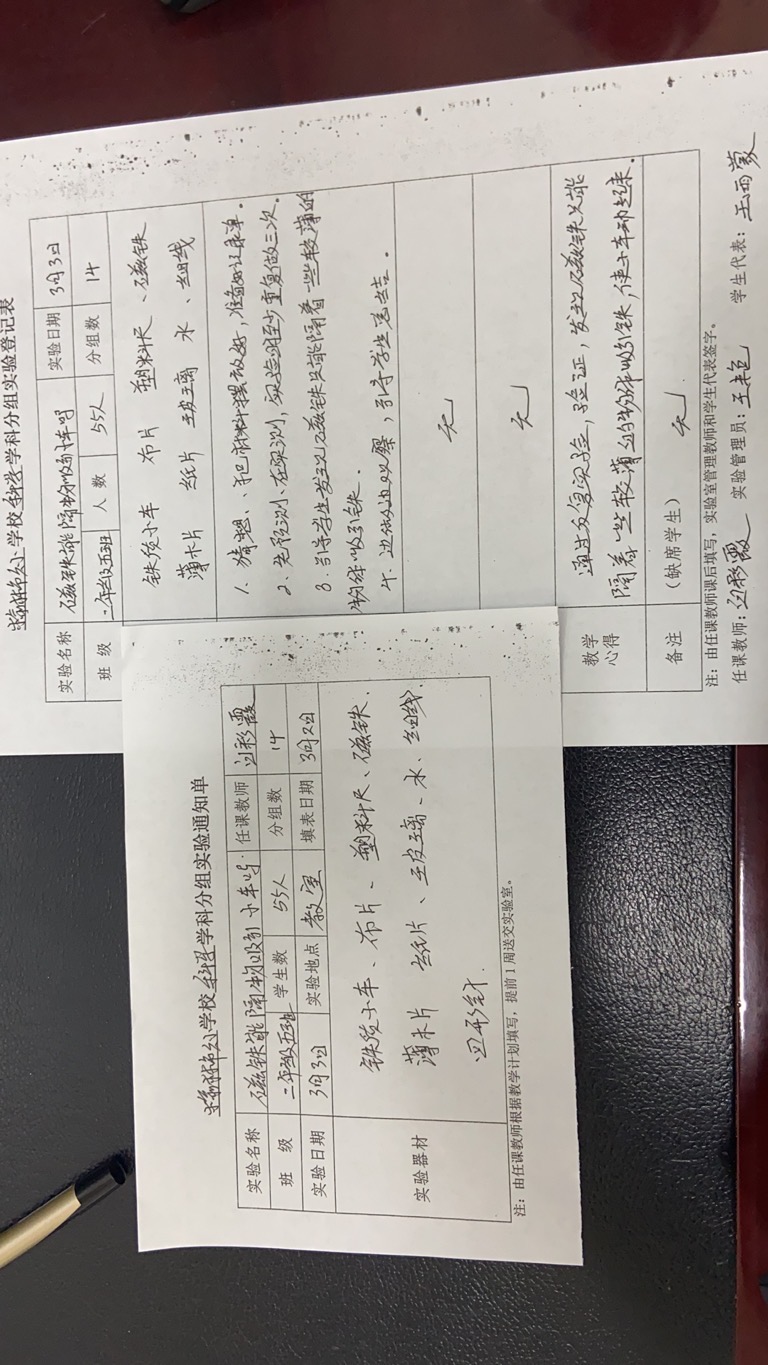 学校科学学科分组实验登记表
实验名称 磁铁能隔物吸引小车吗 实验日期 3月3日
班 级 二年级五班 人 数 55人 分组数 14
铁质小车 布片 塑料尺、磁铁
薄木片 纸片 玻璃 水、丝线
1、猜想、把材料摆放好,准备好记录单。
2、先预测、在实测,实验时至少重复做三次。
3、引导学生发现磁铁只能隔着一些较薄的
物体吸引铁。
4、边做边观察,引导学生总结。
无
无
教学
心得
通过反复实验,验证,发现磁铁只能
隔着一些较薄的物体吸引铁,使小车动起来。
备注 (缺席学生) 无
注:由任课教师课后填写,实验室管理教师和学生代表签字。
任课教师: 彩霞 实验管理员:王艳 学生代表:王雨蒙
学校科学学科分组实验通知单
实验名称 磁铁能隔物吸引小车吗 任课教师 彩霞
班 级 二年级五班 学生数 55人 分组数 14
实验日期 3月3日 实验地点 教室 填表日期 3月2日
实验器材
铁质小车、布片、塑料尺、磁铁、
薄木片 纸片、玻璃、水、丝线、
回形针.
注:由任课教师根据教学计划填写,提前1周送交实验室。